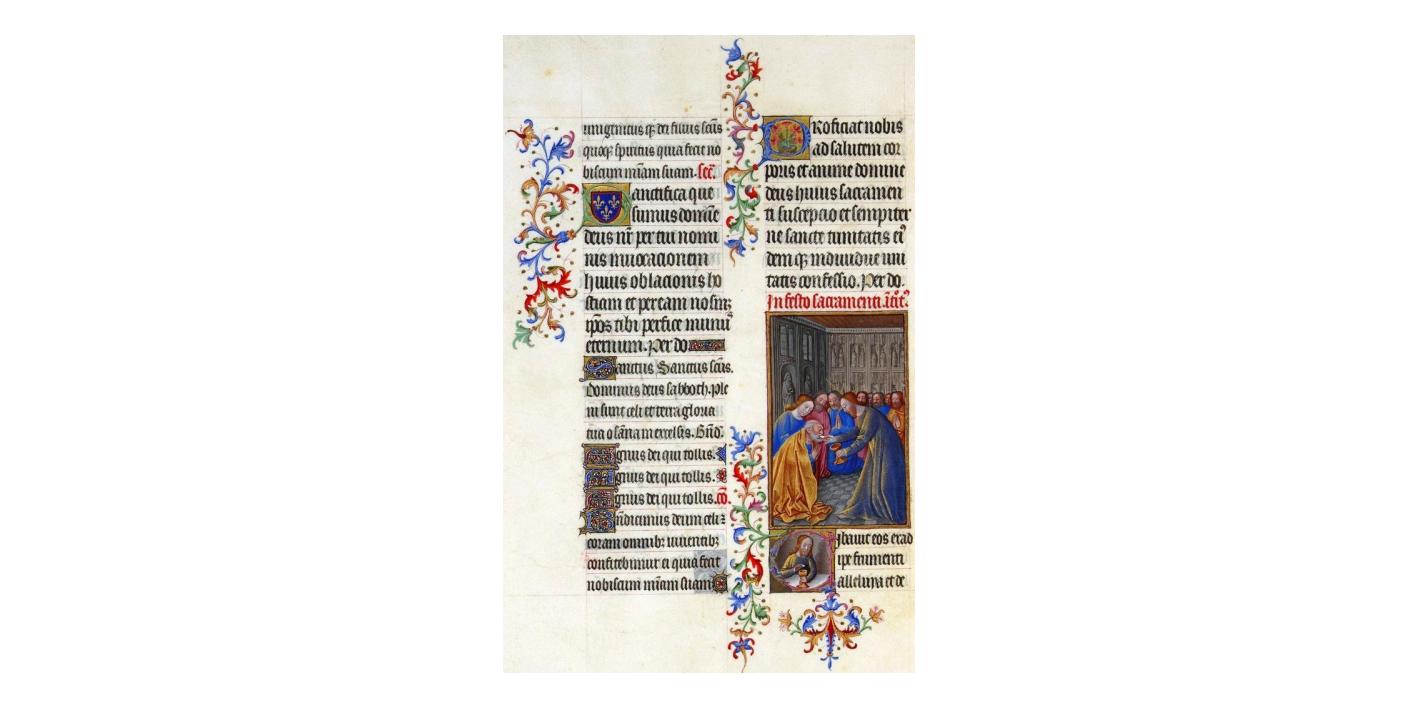 unigenitus qƷ dei filius scūs
quoqƷ spiritus quia fecit no
biscum mīam suam. Sec̄.
Sanctifica que
sumus domīe
deus nr̄ per tui nomi
nis invocacionem
huius oblacionis ho
stiam et per eam nosmꝫ
ip̄os tibi perfice munꝰ
eternum. Per do
Sanctus Sanctus scūs.
Dominus deus sabboth. ple
ni sunt celi et terra gloria
tua osāna in excelsis. Bn̄d.
Agnus dei qui tollis.
Agnus dei qui tollis.
Agnus dei qui tollis. cō.
Bn̄dicimus deum celi ꝛ
coram omnibꝫ viventibꝫ
confitebimur ei quia fecit
nobiscum mīam suam
Proficiat nobis
ad salutem cor
poris et anime domine
deus huius sacramen
ti suscepcio et sempiter
ne sancte trinitatis eiꝰ
demqƷ individue uni
tatis confessio. Per do.
In festo sacramenti
Cibavit eos ex ad
ipe frumenti
alleluya et de